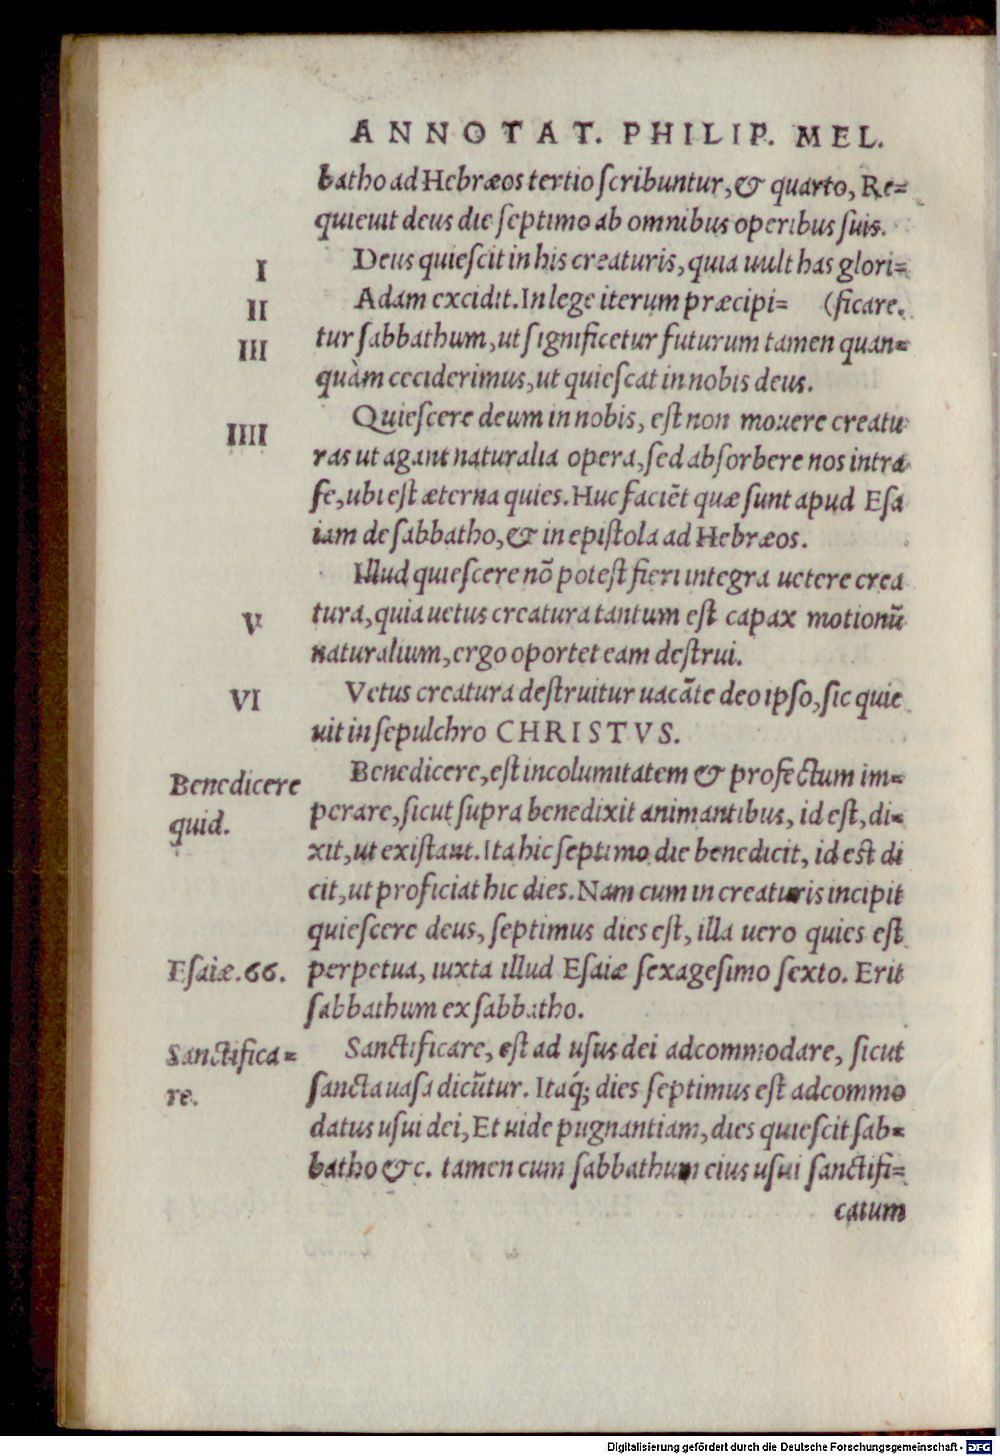 ANNOTAT. PHILIP. MEL.
batho ad Hebræos tertio ſcribuntur, & quarto, Re=
quieuit deus die ſeptimo ab omnibus operibus ſuis.
I
Deus quieſcit in his creaturis, quia uult has glori=
II
Adam excidit. In lege iterum præcipi= (ficare.
III
tur ſabbathum, ut ſignificetur futurum tamen quan=
quàm ceciderimus, ut quieſcat in nobis deus.
IIII
Quieſcere deum in nobis, eſt non mouere creatu
ras ut agant naturalia opera, ſed abſorbere nos intra
ſe, ubi eſt æterna quies. Huc faciẽt quæ ſunt apud Eſa
iam de ſabbatho, & in epiſtola ad Hebræos.
Illud quieſcere nõ poteſt fieri integra uetere crea
V
tura, quia uetus creatura tantum eſt capax motionũ
naturalium, ergo oportet eam deſtrui.
VI
Vetus creatura deſtruitur uacãte deo ipſo, ſic quie
uit in ſepulchro CHRISTVS.
Benedicere
quid.
Benedicere, eſt incolumitatem & profectum im=
perare, ſicut ſupra benedixit animantibus, id eſt, di=
xit, ut exiſtant. Ita hic ſeptimo die benedicit, id est di
cit, ut proficiat hic dies. Nam cum in creaturis incipit
quieſcere deus, ſeptimus dies eſt, illa uero quies eſt
Eſaiæ. 66.
perpetua, iuxta illud Eſaiæ ſexageſimo ſexto. Erit
ſabbathum ex ſabbatho.
Sanctifica=
re.
Sanctificare, eſt ad uſus dei adcommodare, ſicut
ſancta uaſa dicũtur. Itaq́; dies ſeptimus eſt adcommo
datus uſui dei, Et uide pugnantiam, dies quieſcit ſab=
batho &c. tamen cum ſabbathum eius uſui ſanctifi=
catum
Digitalisierung gefördert durch die Deutsche Forschungsgemeinschaft - DFG